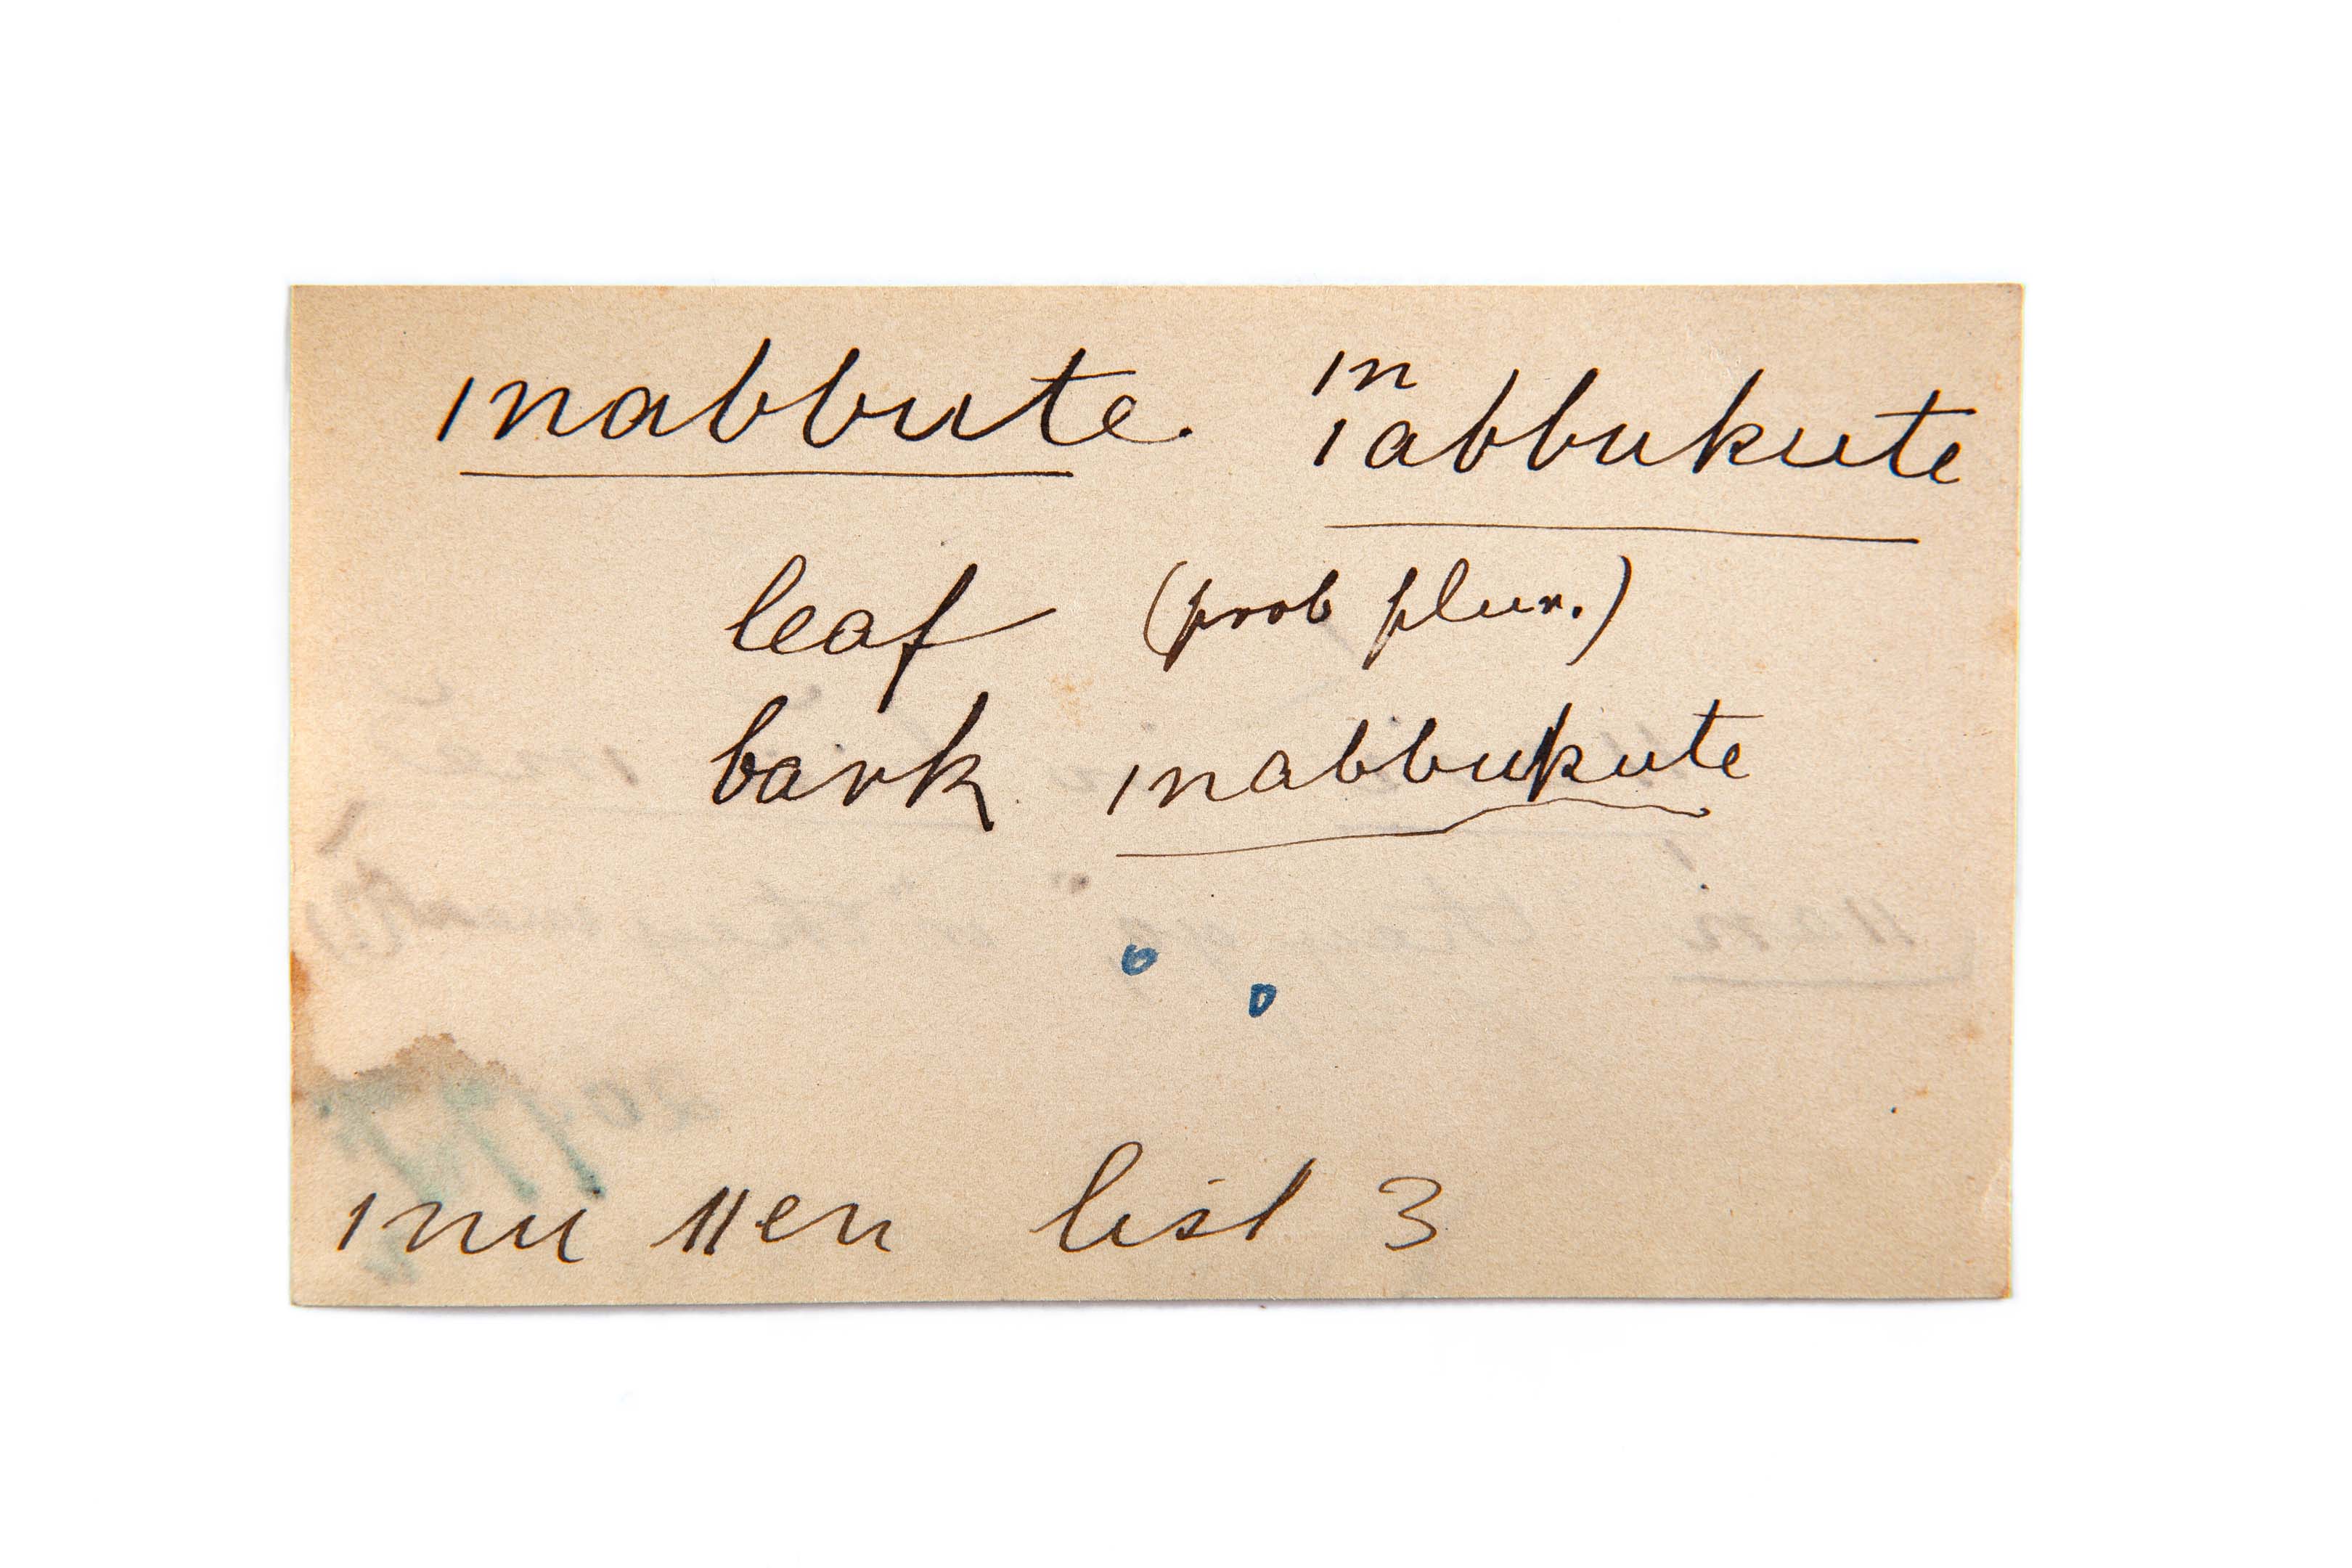 inabbute. in
iabbukute
leaf (prob plur.)
bark inabbukute
inu llen list 3